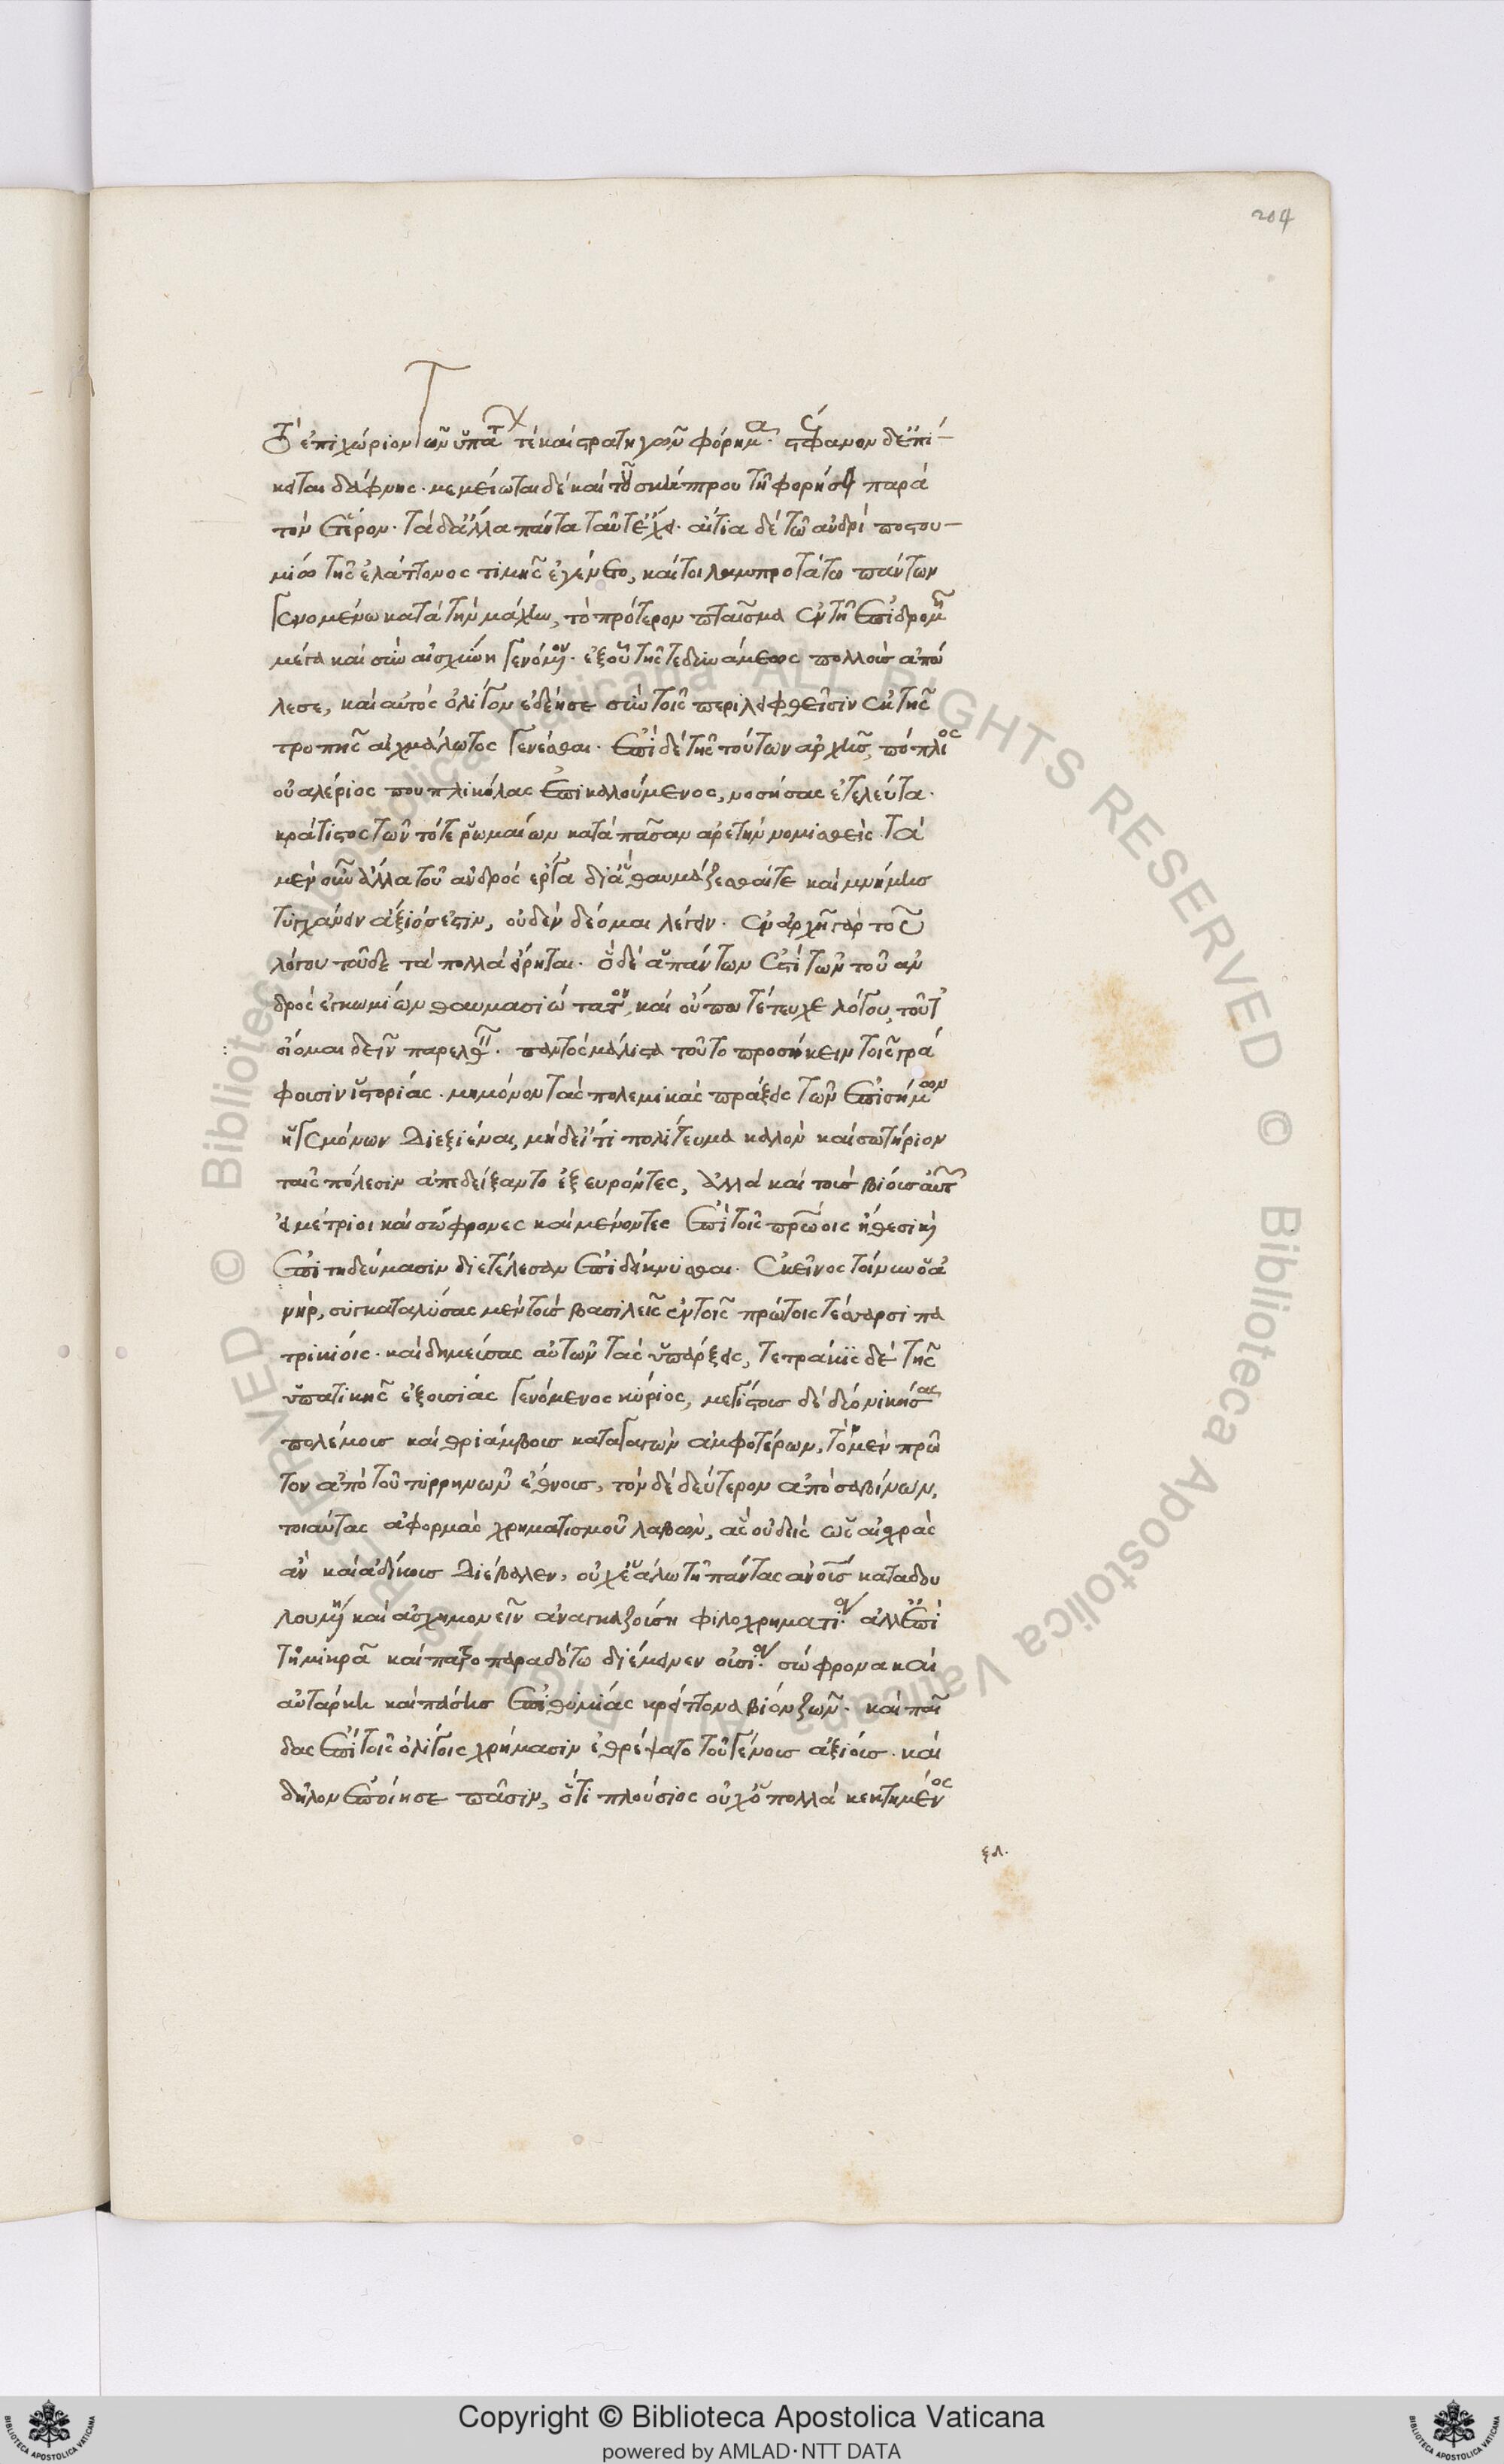 204
τὸ ἐπιχώριον τῶν ὑπάτων τε καὶ στρατηγῶν φόρημα. στέφανον δ' ἐπί-
κειται δάφνης. μεμείωται δὲ καὶ τοῦ σκήπτρου τῇ φορήσει παρὰ
τὸν ἕτερον. τὰ δ' ἄλλα πάντα ταῦτ' ἔχει. αἰτία δὲ τῷ ἀνδρὶ ποστου-
μίω τῆς ἐλάττονος τιμῆς ἐγένετο, καίτοι λαμπροτάτω πάντων
γενομένω κατὰ τὴν μάχην, τὸ πρότερον πταῖσμα ἐν τῇ ἐπιδρομῇ
μέγα καὶ σὺν αἰσχύνη γενόμενον. ἐξ οὗ τῆς τε δυνάμεως πολλοὺς ἀπώ
λεσε, καὶ αὐτὸς ὀλίγον ἐδέησε σὺν τοῖς περιλειφθεῖσιν ἐκ τῆς
τροπῆς αἰχμάλωτος γενέσθαι. ἐπὶ δὲ τῆς τούτων ἀρχῆς, πόπλιος
οὐαλέριος πουπλικόλας ἐπικαλούμενος, νοσήσας ἐτελεύτα.
κράτιστος τῶν τότε ῥωμαίων κατὰ πᾶσαν ἀρετὴν νομισθείς. τὰ
μὲν οὖν ἄλλα τοῦ ἀνδρὸς ἔργα δι' ἃ θαυμάζεσθαί τε καὶ μνήμης
τυγχάνειν ἄξιός ἐστιν, οὐδὲν δέομαι λέγειν. ἐν ἀρχῇ γὰρ τοῦ
λόγου τοῦδε τὰ πολλὰ εἴρηται. ὃ δὲ ἁπάντων ἐστὶ τῶν τοῦ ἀν
δρὸς ἐγκωμίων θαυμασιώτατον, καὶ οὔπω τέτευχε λόγου, τοῦτ'
οἴομαι δεῖν παρελθεῖν. παντὸς μάλιστα τοῦτο προσήκειν τοῖς γρά
φουσιν ἱστορίας. μὴ μόνον τὰς πολεμικὰς πράξεις τῶν ἐπισήμων
ἡγεμόνων διεξιέναι, μηδ' εἴ τι πολίτευμα καλὸν καὶ σωτήριον
ταῖς πόλεσιν ἀπεδείξαντο ἐξευρόντες, ἀλλὰ καὶ τοὺς βίους αὐτῶν
εἰ μέτριοι καὶ σώφρονες καὶ μένοντες ἐπὶ τοῖς πατρώοις ἤθεσι καὶ
ἐπιτηδεύμασιν διετέλεσαν ἐπιδείκνυσθαι. ἐκεῖνος τοίνυν ὁ ἀ
νὴρ, συγκαταλύσας μὲν τοὺς βασιλεῖς ἐν τοῖς πρώτοις τέσσαρσι πα
τρικίοις. καὶ δημεύσας αὐτῶν τὰς ὑπάρξεις, τετράκις δὲ τῆς
ὑπατικῆς ἐξουσίας γενόμενος κύριος, μεγίστους δὲ δύο νικήσας
πολέμους καὶ θριάμβους καταγαγὼν ἀμφοτέρων, τὸν μὲν πρῶ
τον ἀπὸ τοῦ τυρρηνῶν ἔθνους, τὸν δὲ δεύτερον ἀπὸ σαβίνων,
τοιαύτας ἀφορμὰς χρηματισμοῦ λαβὼν, ἃς οὐδεὶς ὡς αἰσχρὰς
ἂν καὶ ἀδίκους διέβαλεν, οὐχ ἑάλω τῇ πάντας ἀνθρώπους καταδου
λουμένη καὶ ἀσχημονεῖν ἀναγκαζούση φιλοχρηματία. ἀλλ' ἐπὶ
τῇ μικρᾷ καὶ πατροπαραδότω διέμεινεν οὐσία. σώφρονα καὶ
αὐτάρκη καὶ πάσης ἐπιθυμίας κρείττονα βίον ζῶν. καὶ παῖ
δας ἐπὶ τοῖς ὀλίγοις χρήμασιν ἐθρέψατο τοῦ γένους ἀξίους. καὶ
δῆλον ἐποίησε πᾶσιν, ὅτι πλούσιος οὐχ ὁ πολλὰ κεκτημένος